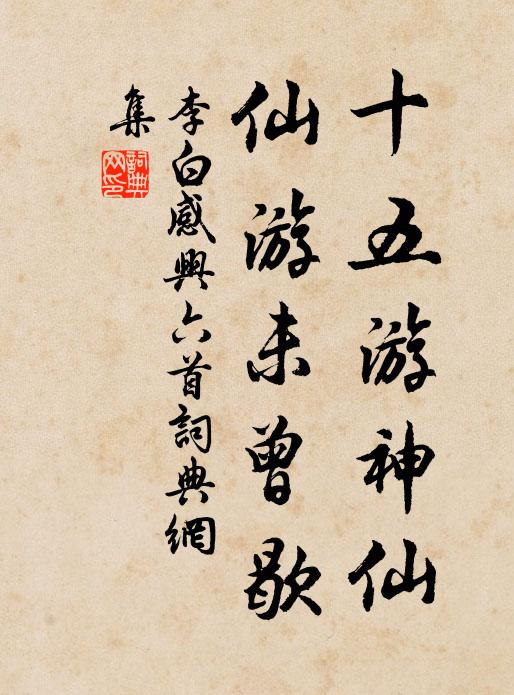 十五游神仙
仙游未曾歇
李白感興六首詞典網
集
詞典
网印